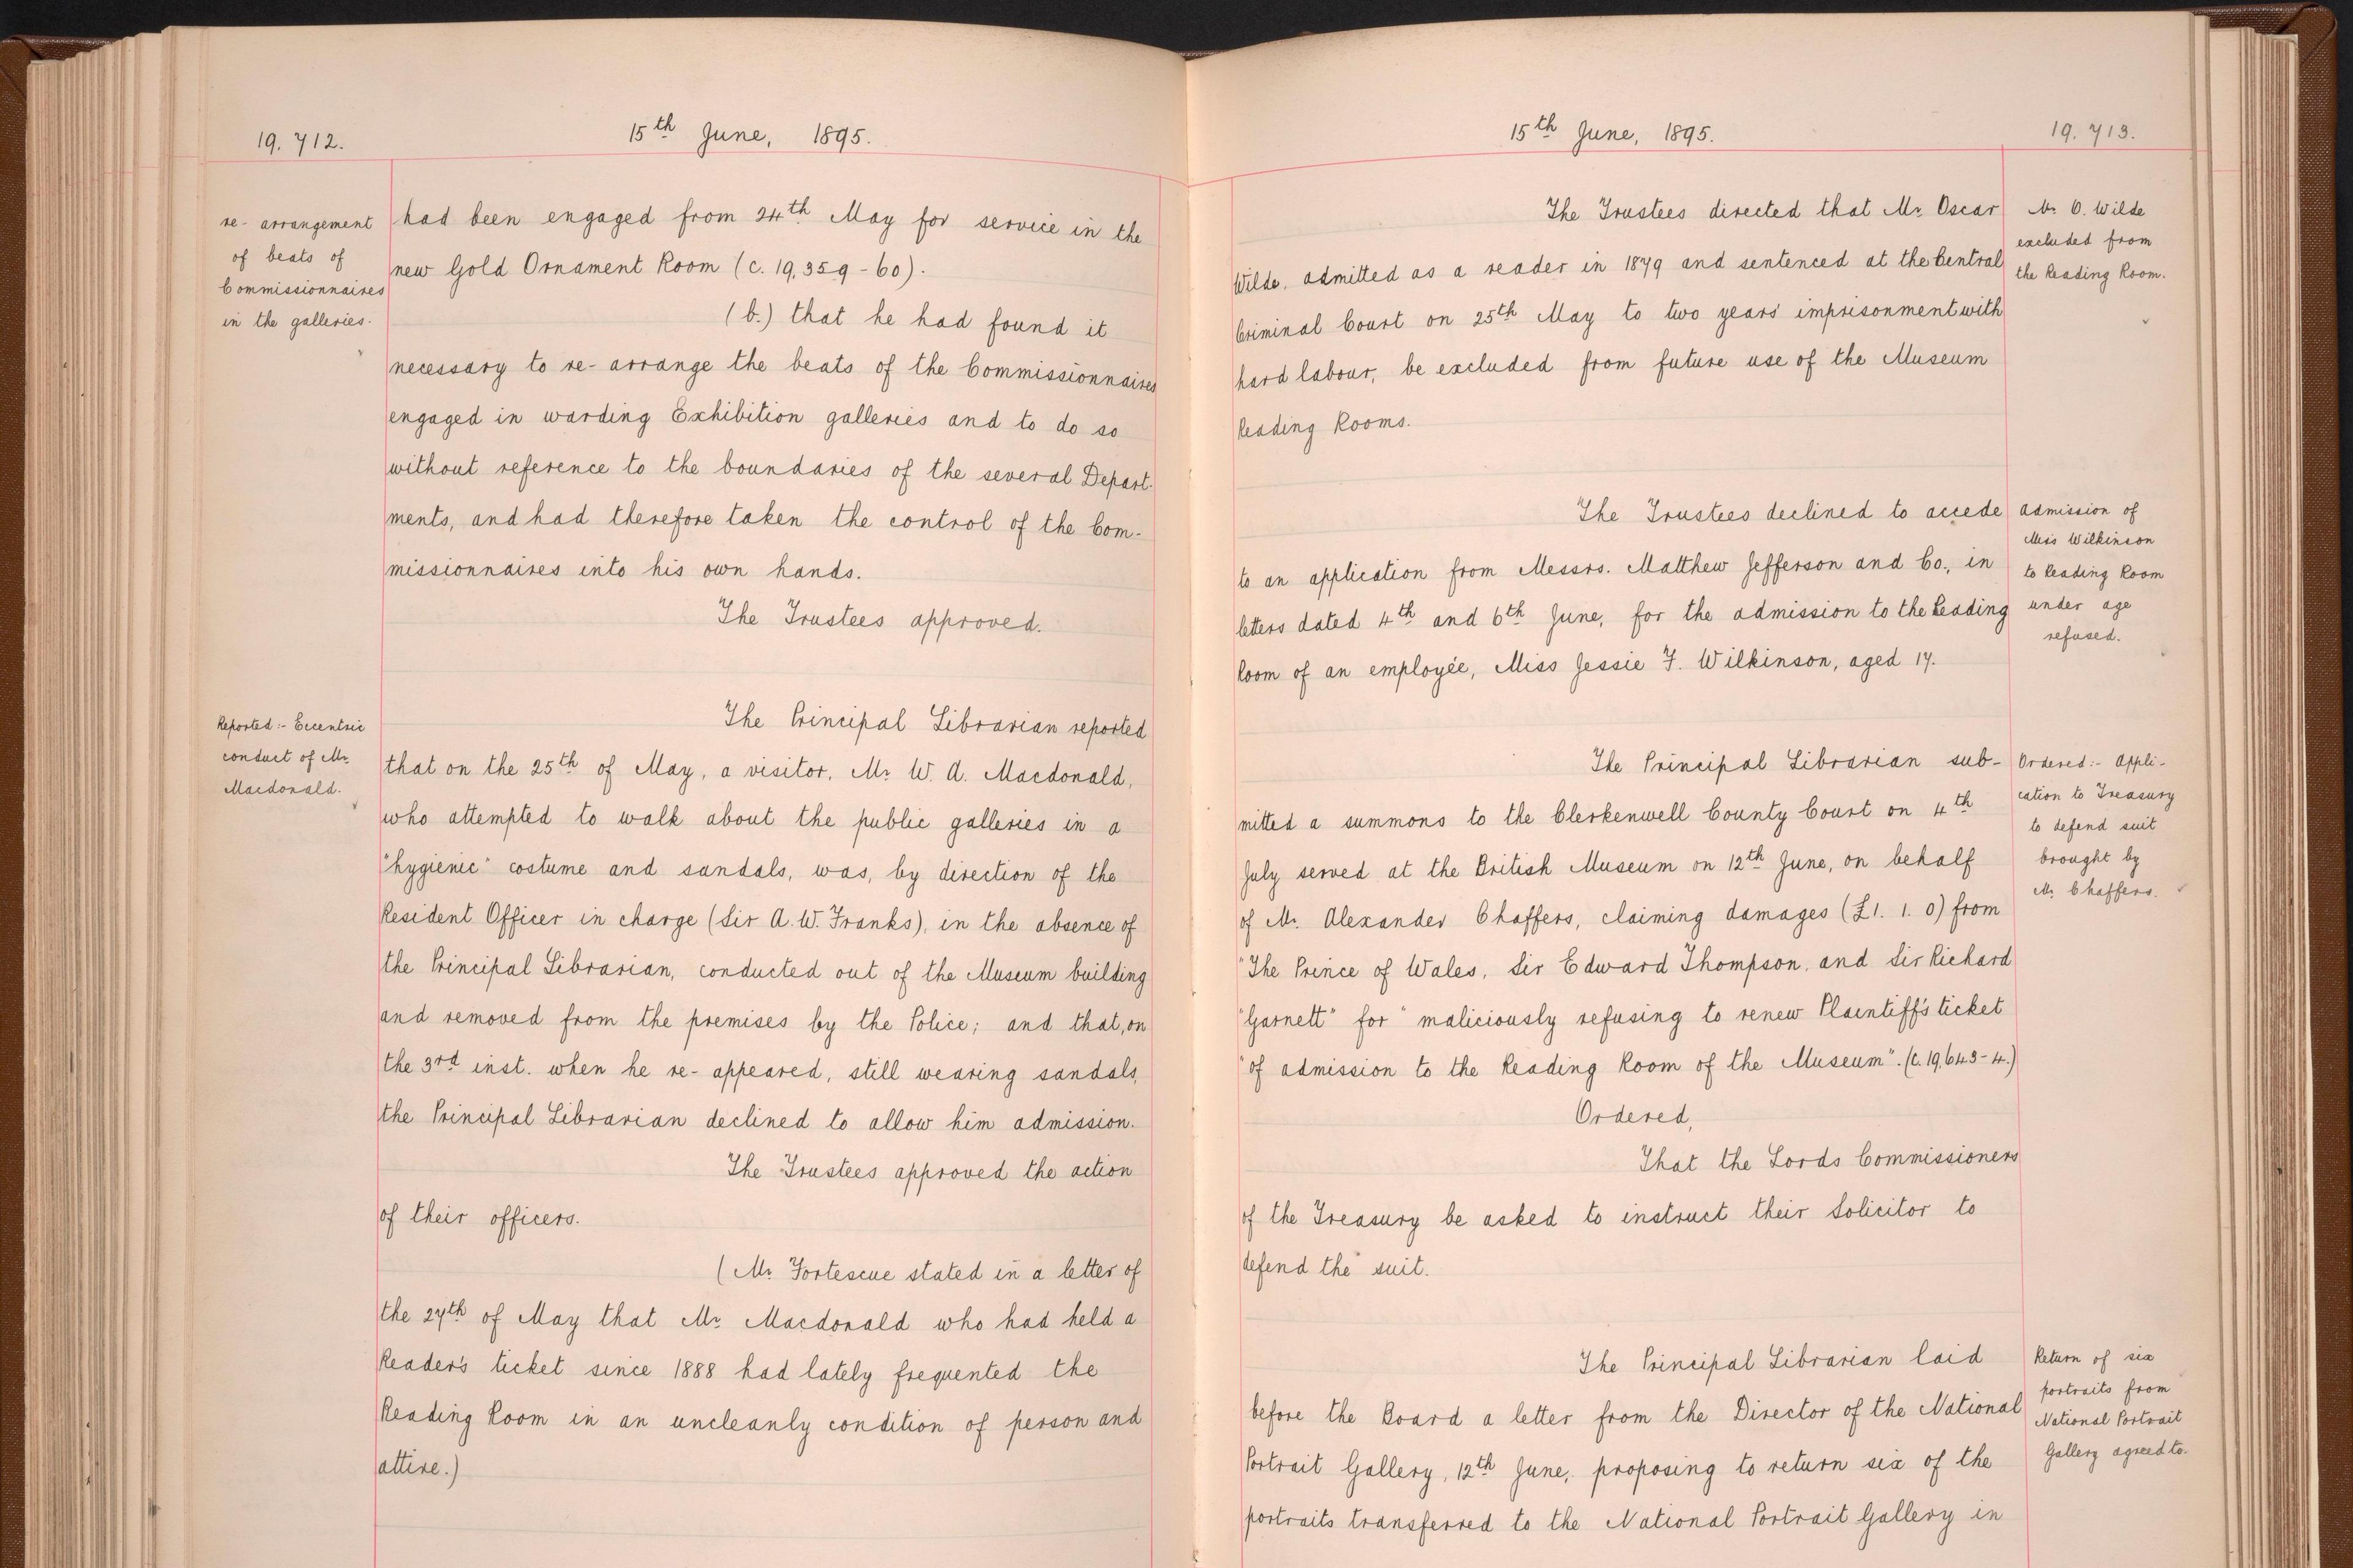 19,712.
15th June, 1895.
re-arrangement
of beats of
Commissionnaires
in the galleries.
had been engaged from 24th May for service in the
new Gold Ornament Room (C. 19,359-60).
(b.) that he had found it
necessary to re-arrange the beats of the Commissionnaires
engaged in warding Exhibition galleries and to do so
without reference to the boundaries of the several Depart-
ments, and had therefore taken the control of the Com-
missionnaires into his own hands.
The Trustees approved.
Reported:- Eccentric
conduct of Mr.
Macdonald.
The Principal Librarian reported
that on the 25th of May, a visitor, Mr. W. A. Macdonald,
who attempted to walk about the public galleries in a
"hygienic" costume and sandals, was, by direction of the
Resident Officer in charge (Sir A. W. Franks), in the absence of
the Principal Librarian, conducted out of the Museum building
and removed from the premises by the Police; and that, on
the 3rd inst. when he re-appeared, still wearing sandals,
the Principal Librarian declined to allow him admission.
The Trustees approved the action
of their officers.
(Mr. Fortescue stated in a letter of
the 27th of May that Mr. Macdonald who had held a
Reader's ticket since 1888 had lately frequented the
Reading Room in an uncleanly condition of person and
attire.)
15th June, 1895.
19,713.
The Trustees directed that Mr. Oscar
Wilde, admitted as a reader in 1879 and sentenced at the Central
Criminal Court on 25th May to two years' imprisonment with
hard labour, be excluded from future use of the Museum
Reading Rooms.
Mr. O. Wilde
excluded from
the Reading Room.
The Trustees declined to accede
to an application from Messrs. Matthew Jefferson and Co., in
letters dated 4th and 6th June, for the admission to the Reading
Room of an employée, Miss Jessie F. Wilkinson, aged 17.
Admission of
Miss Wilkinson
to Reading Room
under age
refused.
The Principal Librarian sub-
mitted a summons to the Clerkenwell County Court on 4th
July served at the British Museum on 12th June, on behalf
of Mr. Alexander Chaffers, claiming damages (£1. 1. 0) from
"The Prince of Wales, Sir Edward Thompson, and Sir Richard
"Garnett" for "maliciously refusing to renew Plaintiff's ticket
"of admission to the Reading Room of the Museum". (C. 19,643-4.)
Ordered,
That the Lords Commissioners
of the Treasury be asked to instruct their Solicitor to
defend the suit.
Ordered:- Appli-
cation to Treasury
to defend suit
brought by
Mr. Chaffers.
The Principal Librarian laid
before the Board a letter from the Director of the National
Portrait Gallery, 12th June, proposing to return six of the
portraits transferred to the National Portrait Gallery in
Return of six
portraits from
National Portrait
Gallery agreed to.